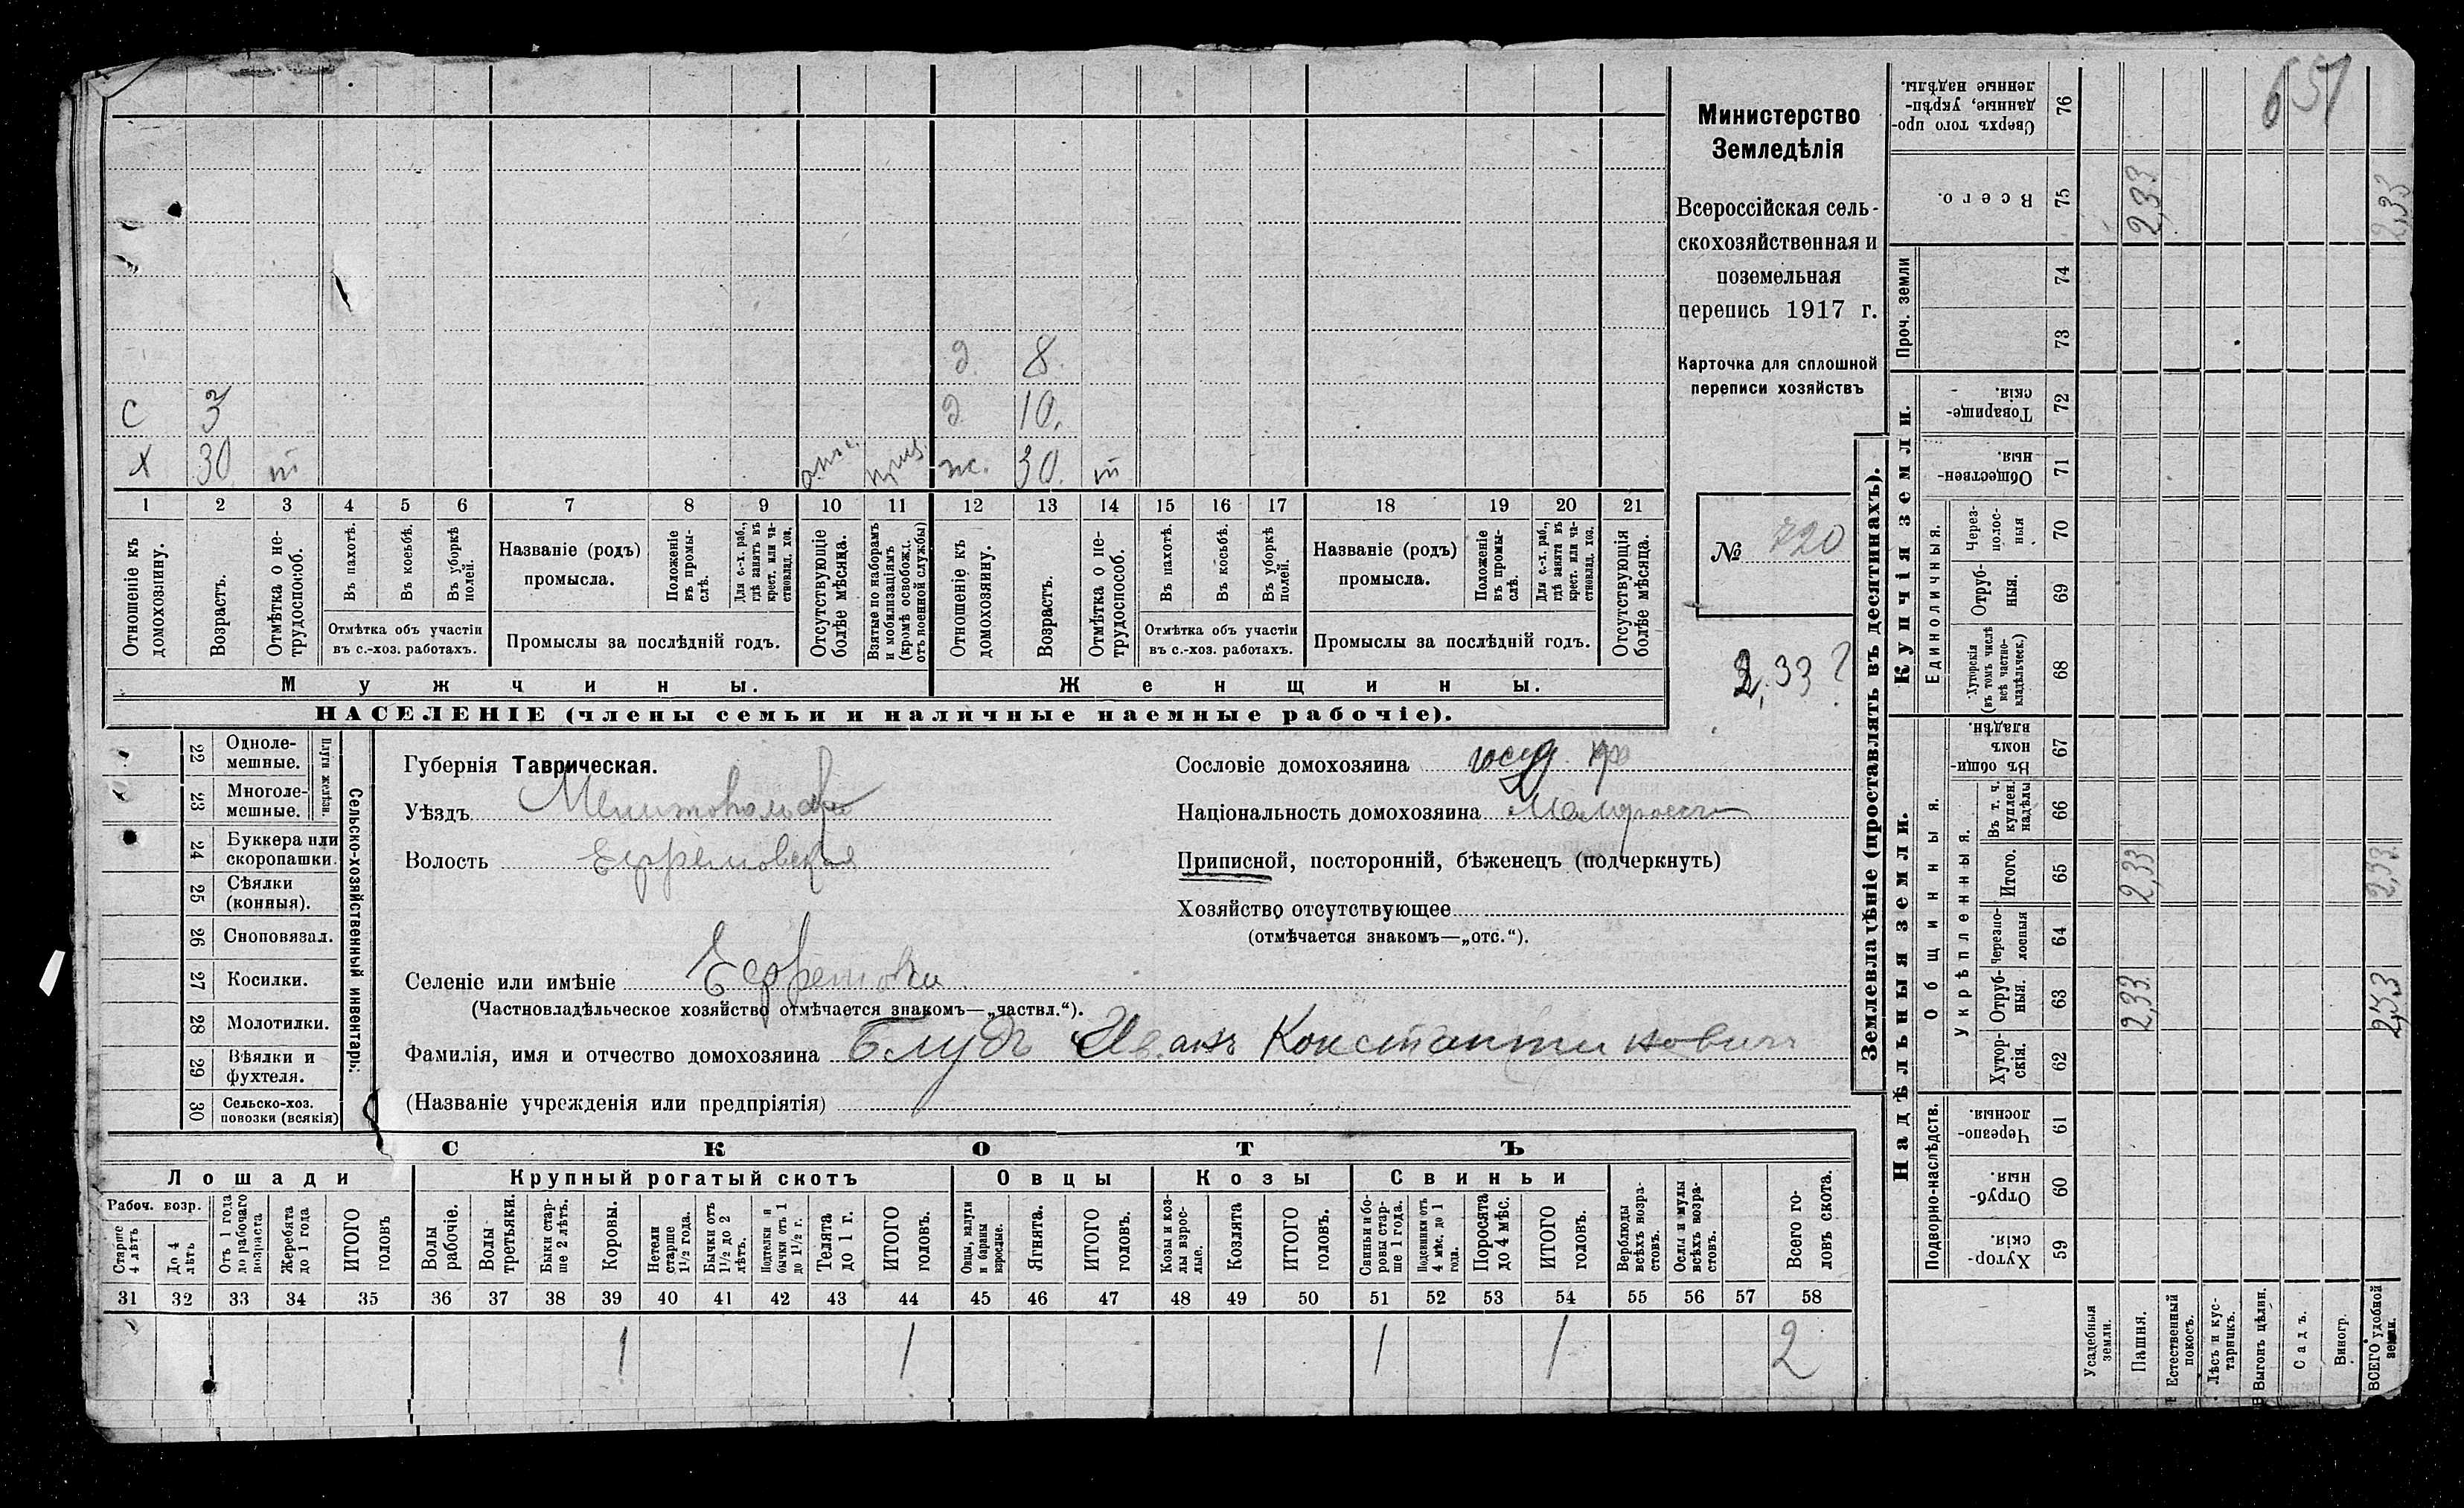 651
Министерство
Земледѣлія
Всероссійская сель-
скохозяйственная и
поземельная
перепись 1917 г.
Карточка для сплошной
переписи хозяйствъ
№ 720
2,33 ?
д. 8.
С 3 д 10.
Х 30 отс. ж. 30.
1 2 3 4 5 6 7 8 9 10 11 12 13 14 15 16 17 18 19 20 21
Отношеніе къ домохозяину.
Возрастъ.
Отмѣтка о не-трудоспособ.
Въ пахотѣ.
Въ косьбѣ.
Въ уборкѣ полей.
Отмѣтка объ участіи
въ с.-хоз. работахъ.
Названіе (родъ)
промысла.
Положеніе въ промы-слѣ.
Для с.-х. раб., гдѣ занятъ въ крест. или ча-стновлад. хоз.
Промыслы за послѣдній годъ.
Отсутствующіе болѣе мѣсяца.
Взятые по наборамъ и мобилизаціямъ (кромѣ освобожд. отъ военной службы)
Отношеніе къ домохозяину.
Возрастъ.
Отмѣтка о не-трудоспособ.
Въ пахотѣ.
Въ косьбѣ.
Въ уборкѣ полей.
Отмѣтка объ участіи
въ с.-хоз. работахъ.
Названіе (родъ)
промысла.
Положеніе въ промы-слѣ.
Для с.-х. раб., гдѣ занята въ крест. или ча-стновлад. хоз.
Промыслы за послѣдній годъ.
Отсутствующія болѣе мѣсяца.
Мужчины. Женщины.
НАСЕЛЕНІЕ (члены семьи и наличные наемные рабочіе).
Сельско-хозяйственный инвентарь:
Плуги желѣзн.
22 Одноле-мешные.
23 Многоле-мешные.
24 Буккера или скоропашки.
25 Сѣялки (конныя).
26 Сноповязал.
27 Косилки.
28 Молотилки.
29 Вѣялки и фухтеля.
30 Сельско-хоз. повозки (всякія)
Губернія Таврическая.
Уѣздъ
Волость Ефремовская
Селеніе или имѣніе Ефремовка
(Частновладѣльческое хозяйство отмѣчается знакомъ—„частвл.“).
Фамилія, имя и отчество домохозяина Блудъ Иванъ Константиновичъ
(Названіе учрежденія или предпріятія)
Сословіе домохозяина госуд. кр
Національность домохозяина Малоросс
Приписной, посторонній, бѣженецъ (подчеркнуть)
Хозяйство отсутствующее
(отмѣчается знакомъ—„отс.“).
СКОТЪ
Лошади Крупный рогатый скотъ Овцы Козы Свиньи
Рабоч. возр.
Старше 4 лѣтъ
До 4 лѣтъ
Отъ 1 года до рабочаго возраста
Жеребята до 1 года
ИТОГО головъ
Волы рабочіе.
Волы третьяки.
Быки стар-ше 2 лѣтъ.
Коровы.
Нетели старше 1½ года.
Бычки отъ 1½ до 2 лѣтъ.
Подтелки и бычки отъ 1 до 1½ г.
Телята до 1 г.
ИТОГО головъ.
Овцы, валухи и бараны взрослые.
Ягнята.
ИТОГО головъ.
Козы и коз-лы взрос-лые.
Козлята
ИТОГО головъ.
Свиньи и бо-ровы стар-ше 1 года.
Подсвинки отъ 4 мѣс. до 1 года.
Поросята до 4 мѣс.
ИТОГО головъ.
Верблюды всѣхъ возра-стовъ.
Ослы и мулы всѣхъ возра-стовъ.
Всего го-ловъ скота.
31 32 33 34 35 36 37 38 39 40 41 42 43 44 45 46 47 48 49 50 51 52 53 54 55 56 57 58
1 1 1 1 2
Землевладѣніе (проставлять въ десятинахъ).
Купчія земли.
Надѣльныя земли.
Проч. земли
Единоличныя.
Общинныя.
Укрѣпленныя.
Подворно-наслѣдств.
Сверхъ того про-данные, укрѣп-ленные надѣлы. 76
Всего. 75 2,33 2,33
74
73
Товарище-скія. 72
Обществен-ныя. 71
Через-полос-ныя 70
Отруб-ныя. 69
Хуторскія (въ томъ числѣ всѣ частно-владѣльческ.) 68
Въ общин-номъ владѣн. 67
Въ т. ч. куплен. надѣлы 66
Итого. 65 2,33 2,33
Черезпо-лосныя 64
Отруб-ныя. 63 2,33 2,33
Хутор-скія. 62
Черезпо-лосныя. 61
Отруб-ныя. 60
Хутор-скія. 59
Усадебныя земли.
Пашня.
Естественный покосъ.
Лѣсъ и кус-тарникъ.
Выгонъ цѣлин.
Садъ.
Виногр.
ВСЕГО удобной земли.